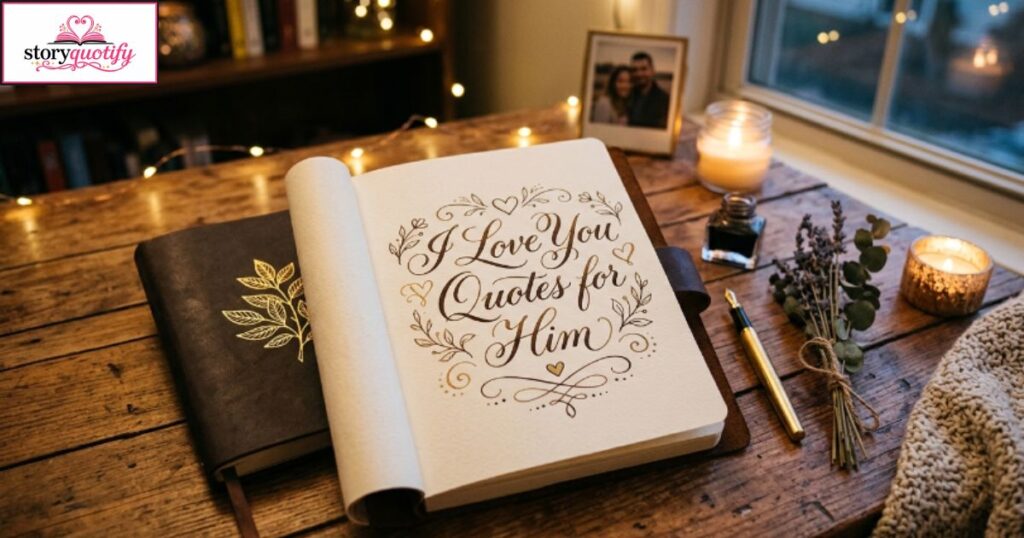 storyquotify
I Love You
Quotes for
Him